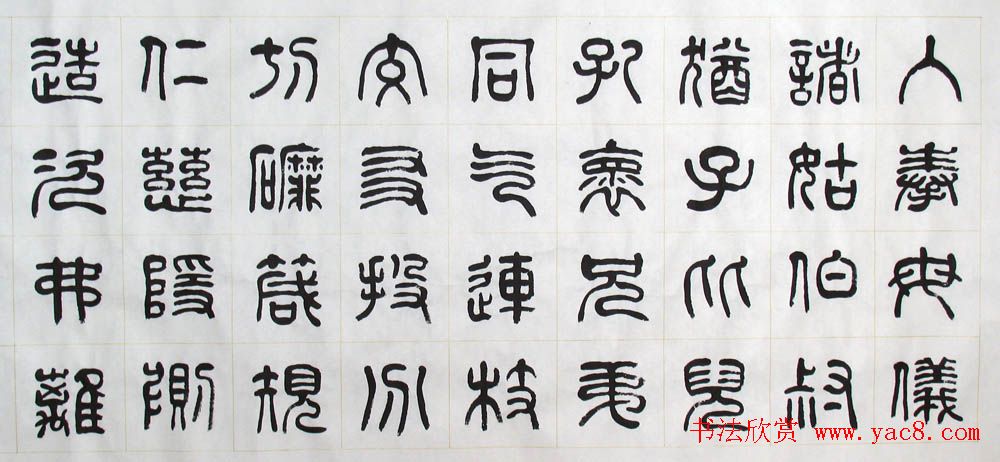 入奉母儀
諸姑伯叔
猶子比兒
孔懷兄弟
同氣連枝
交友投分
切磨箴規
仁慈隱惻
造次弗離
书法欣赏 www.yac8.com